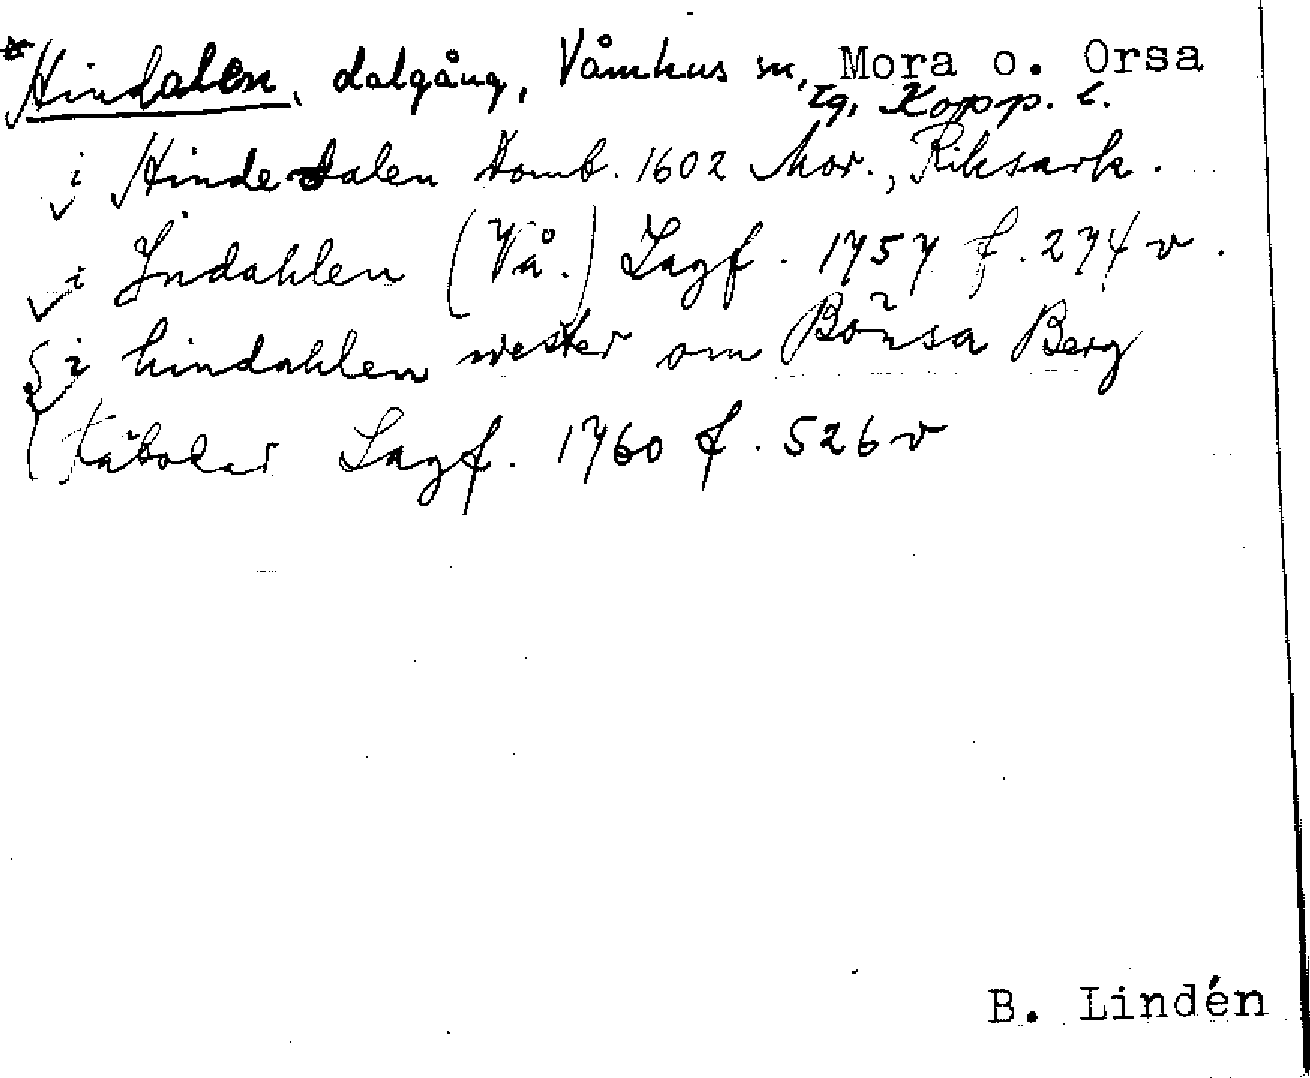 *Hindalen, dalgång, Våmhus sn, Mora o. Orsa
tg, Kopp. l.
i Hinde dalen Domb. 1602 Mor., Riksark.
i Indahlen (Vå.) Lagf. 1757 f. 274 v.
i hindahlen wester om Bönsa Berg
Käbolar Lagf. 1760 f. 526 v
B. Lindén